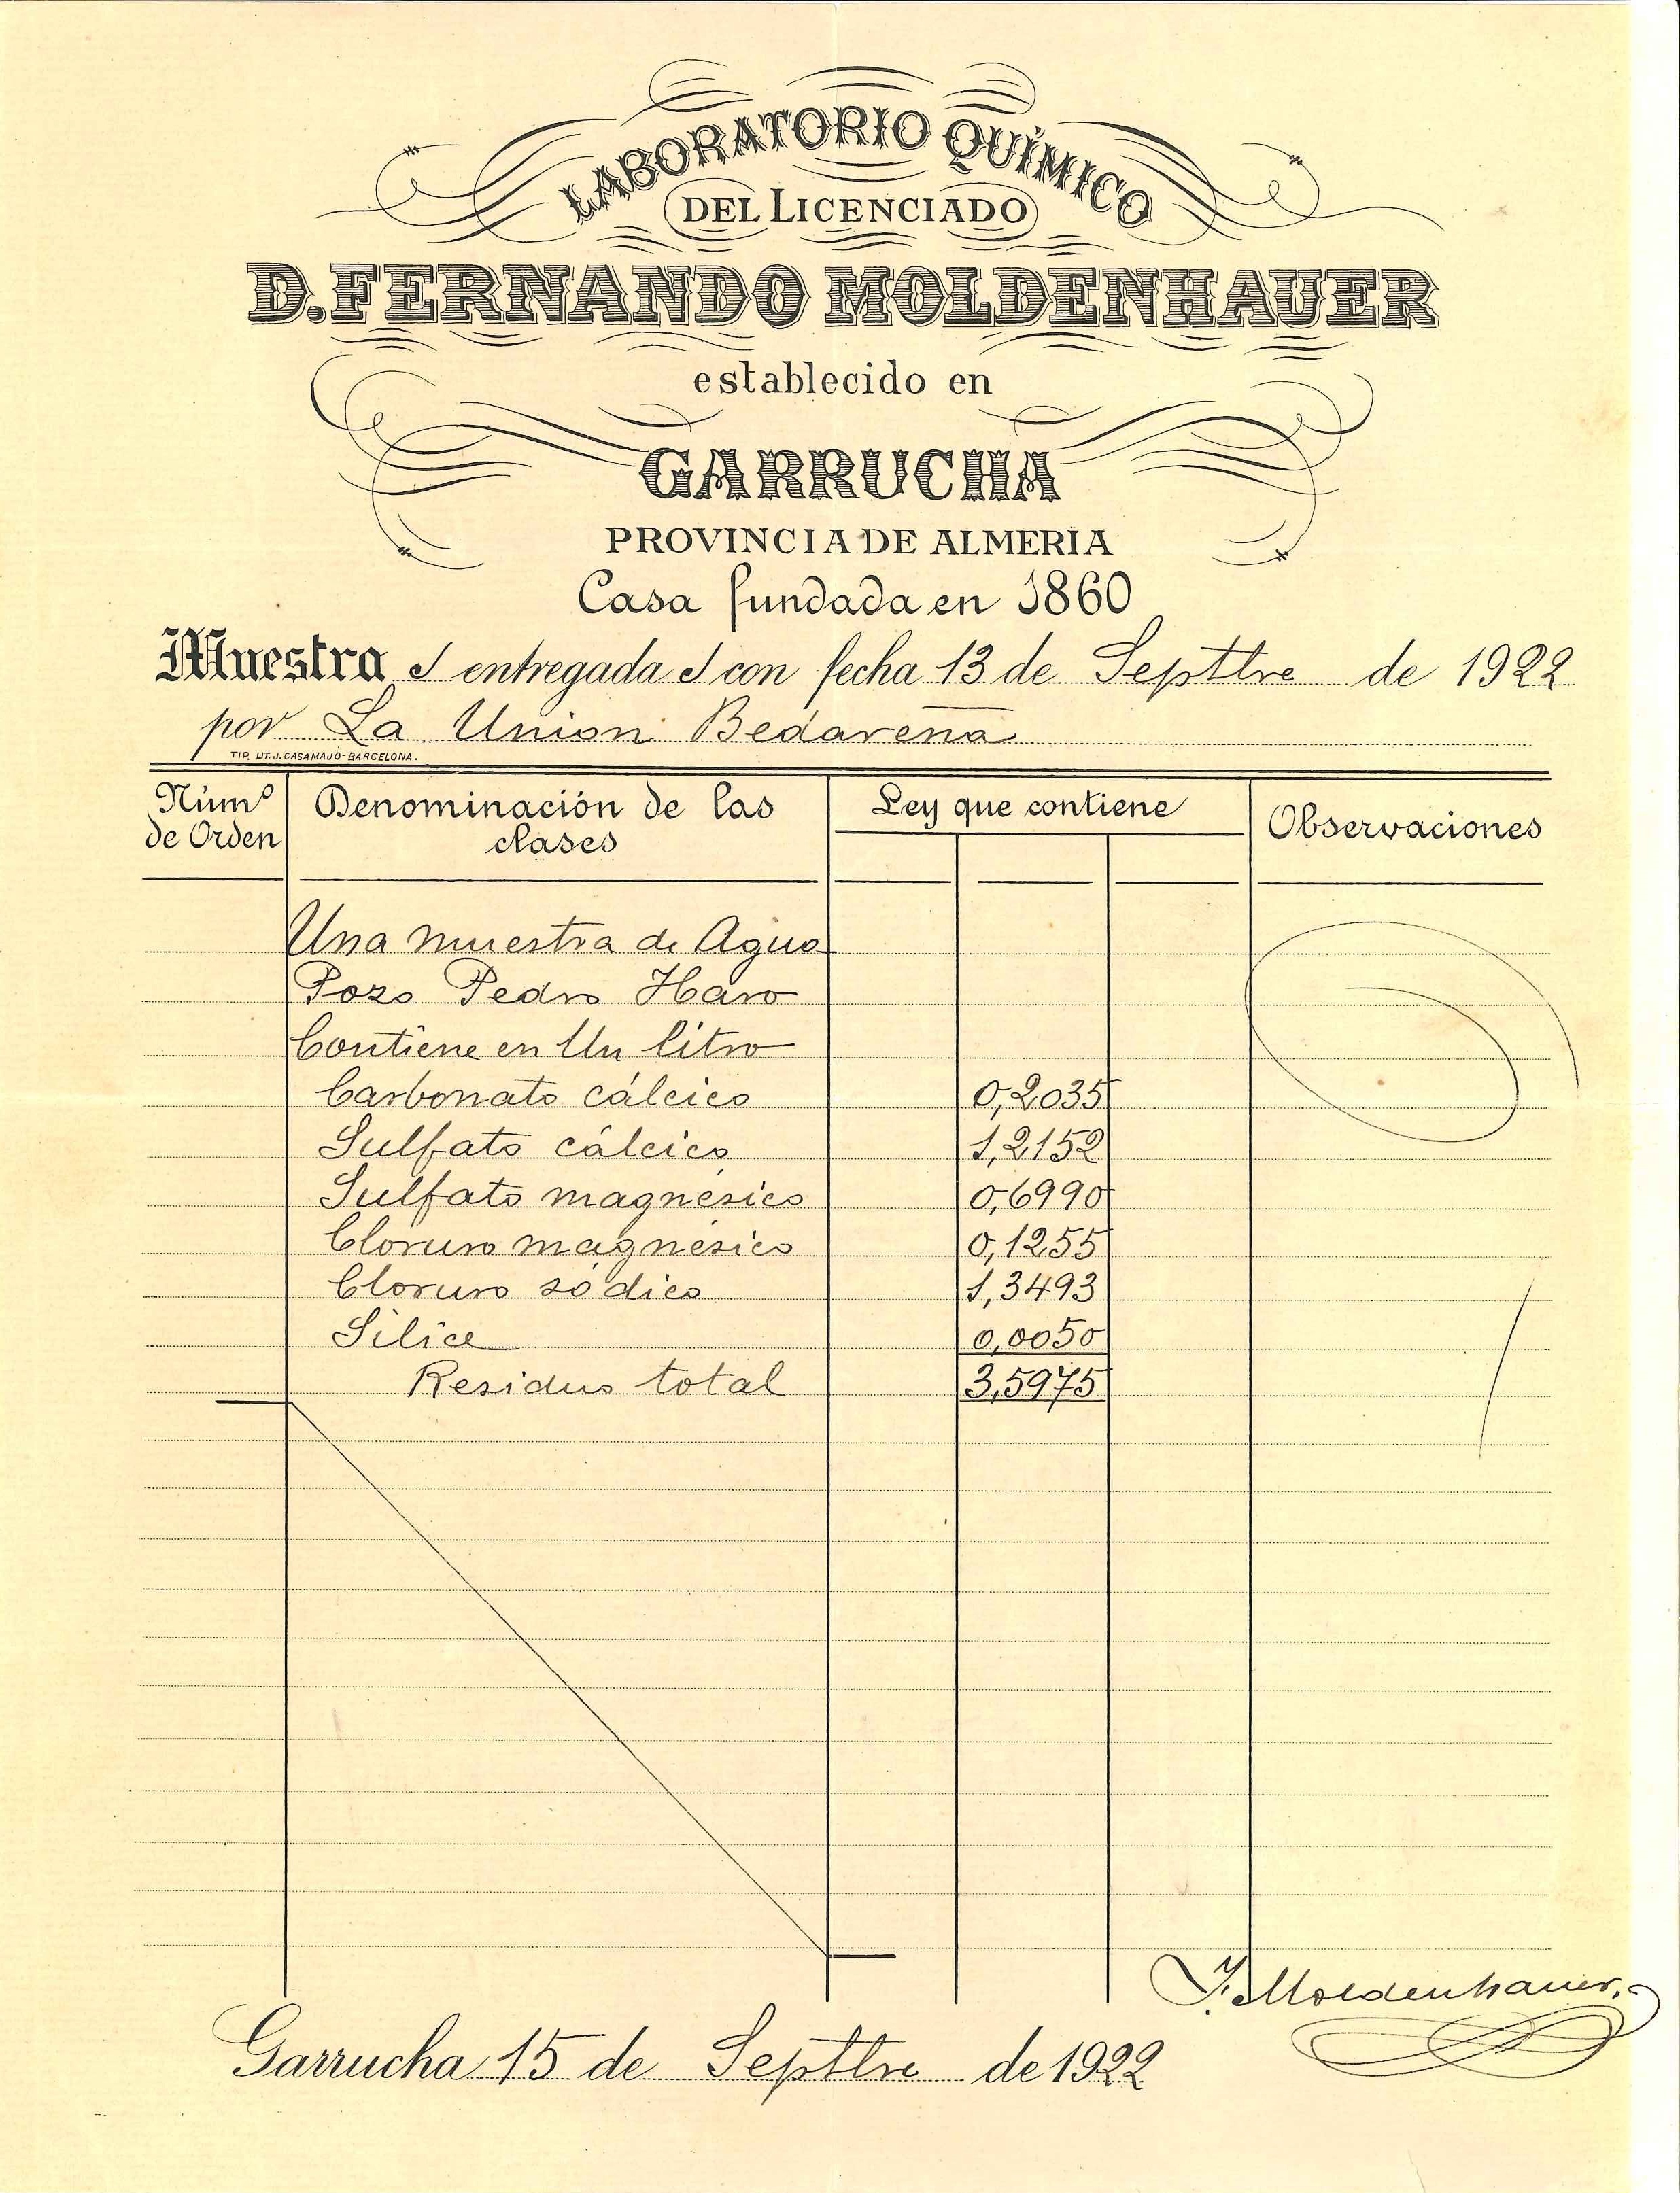 LABORATORIO QUÍMICO
DEL LICENCIADO
D. FERNANDO MOLDENHAUER
establecido en
GARRUCHA
PROVINCIA DE ALMERIA
Casa fundada en 1860
Muestra entregada con fecha 13 de Septtbre de 1922
por La Union Bedareña
TIP. LIT. J. CASAMAJÓ-BARCELONA.
Númº de Orden Denominación de las clases Ley que contiene Observaciones
Una muestra de Agua
Pozo Pedro Haro
Contiene en Un litro
Carbonato cálcico 0,2035
Sulfato cálcico 1,2152
Sulfato magnésico 0,6990
Cloruro magnésico 0,1255
Cloruro sódico 1,3493
Silice 0,0050
Residuo total 3,5975
F. Moldenhauer.
Garrucha 15 de Septtbre de 1922